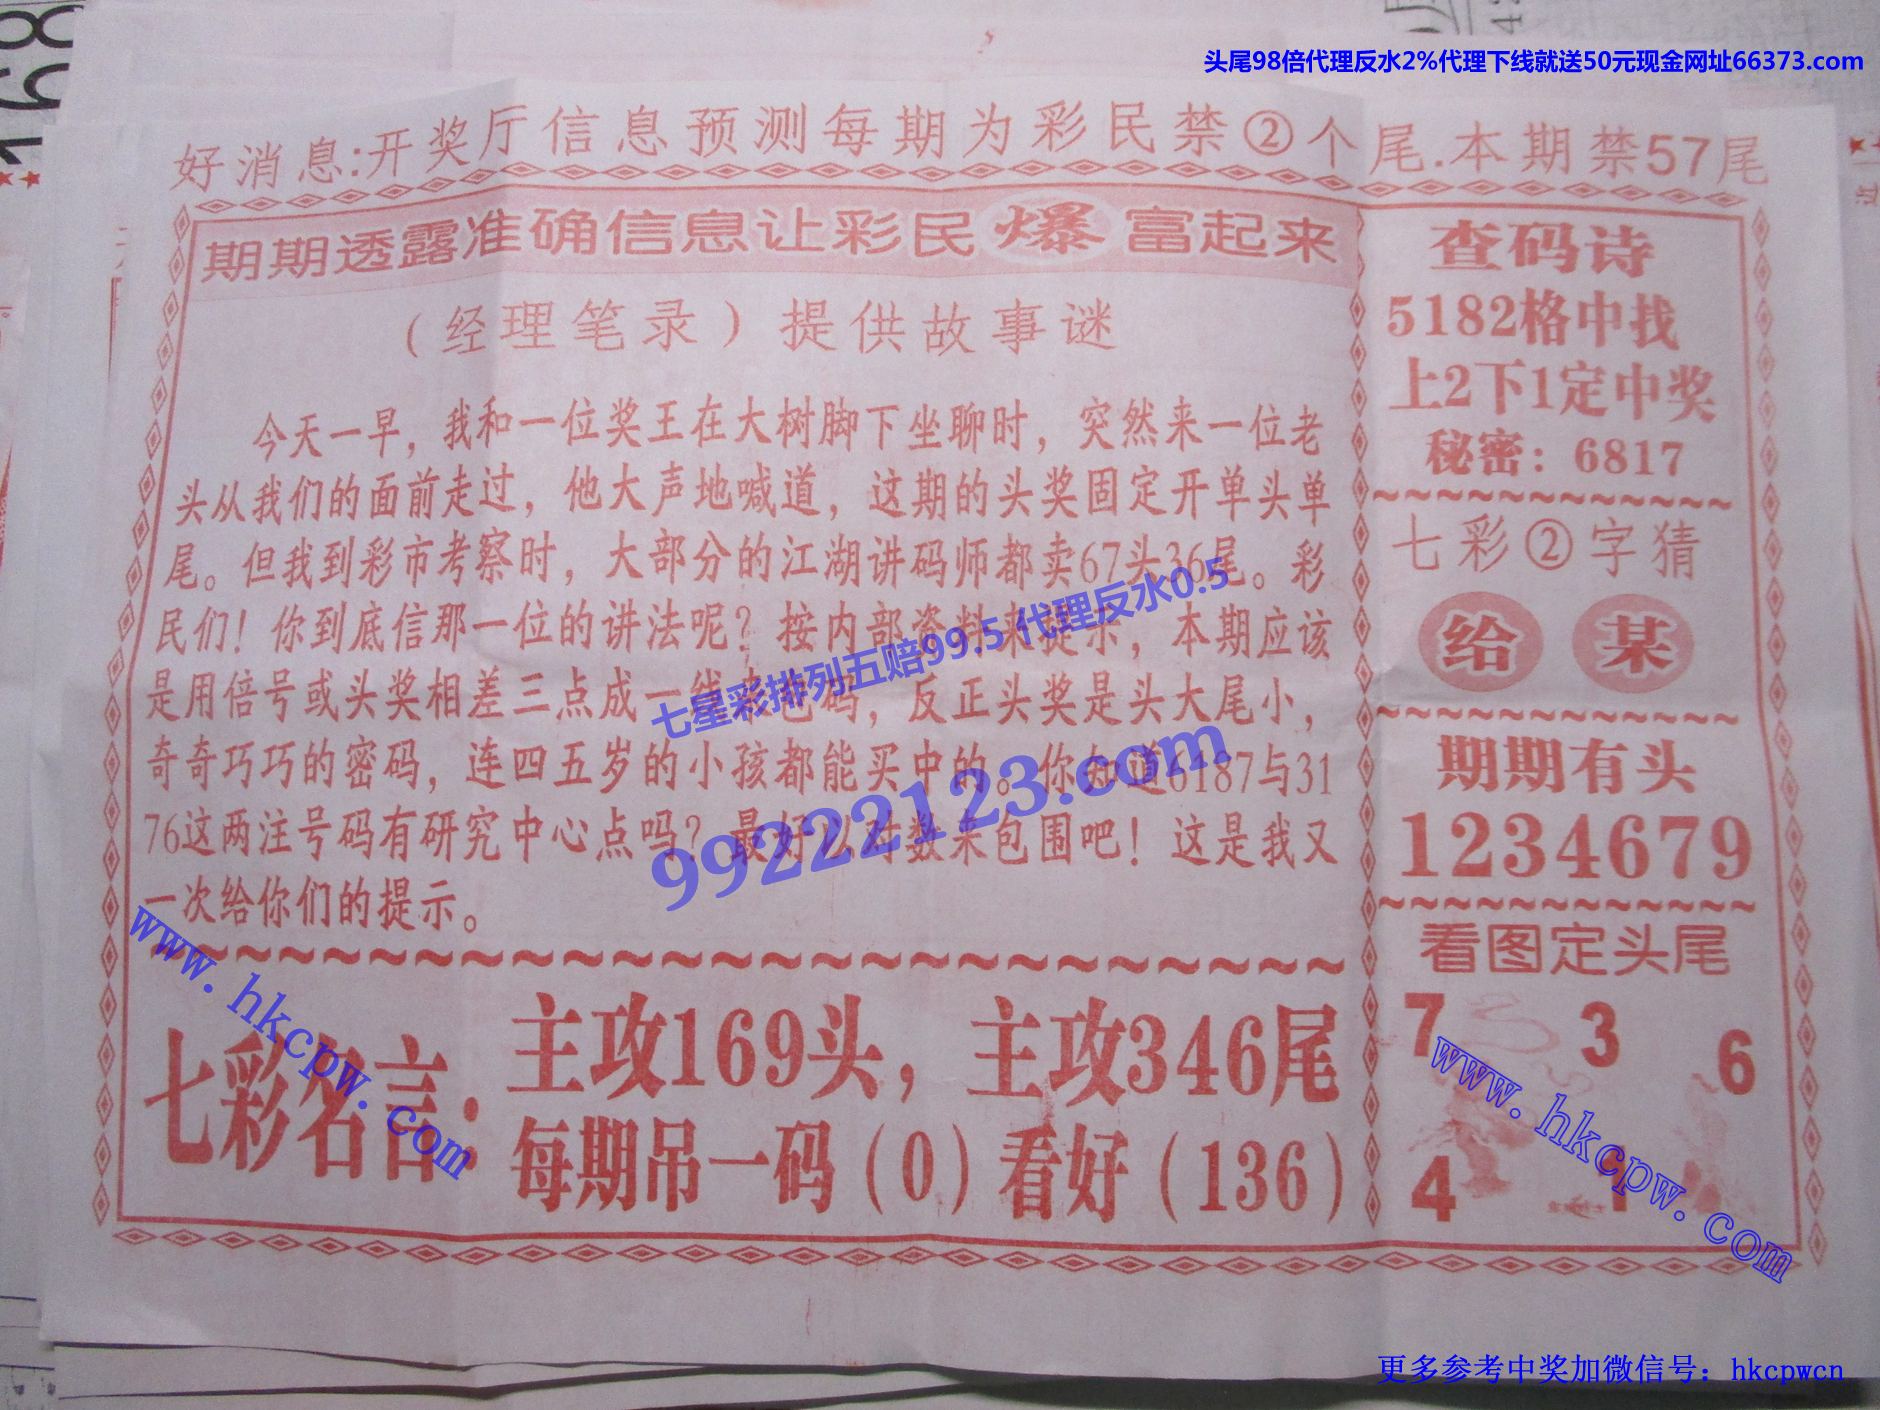 168
头尾98倍代理反水2%代理下线就送50元现金网址66373.com
好消息:开奖厅信息预测每期为彩民禁②个尾.本期禁57尾
期期透露准确信息让彩民爆富起来
（经理笔录）提供故事谜
今天一早，我和一位奖王在大树脚下坐聊时，突然来一位老
头从我们的面前走过，他大声地喊道，这期的头奖固定开单头单
尾。但我到彩市考察时，大部分的江湖讲码师都卖67头36尾。彩
民们！你到底信那一位的讲法呢？按内部资料来提示，本期应该
是用倍号或头奖相差三点成一线来包码，反正头奖是头大尾小，
奇奇巧巧的密码，连四五岁的小孩都能买中的。你知道6187与31
76这两注号码有研究中心点吗？最好以对数来包围吧！这是我又
一次给你们的提示。
七星彩排列五赔99.5代理反水0.5
99222123.com
七彩名言：
主攻169头，主攻346尾
每期吊一码（0）看好（136）
www.hkcpw.com
查码诗
5182格中找
上2下1定中奖
秘密：6817
七彩②字猜
给 某
期期有头
1234679
看图定头尾
7 3 6
4 1
www.hkcpw.com
更多参考中奖加微信号：hkcpwcn